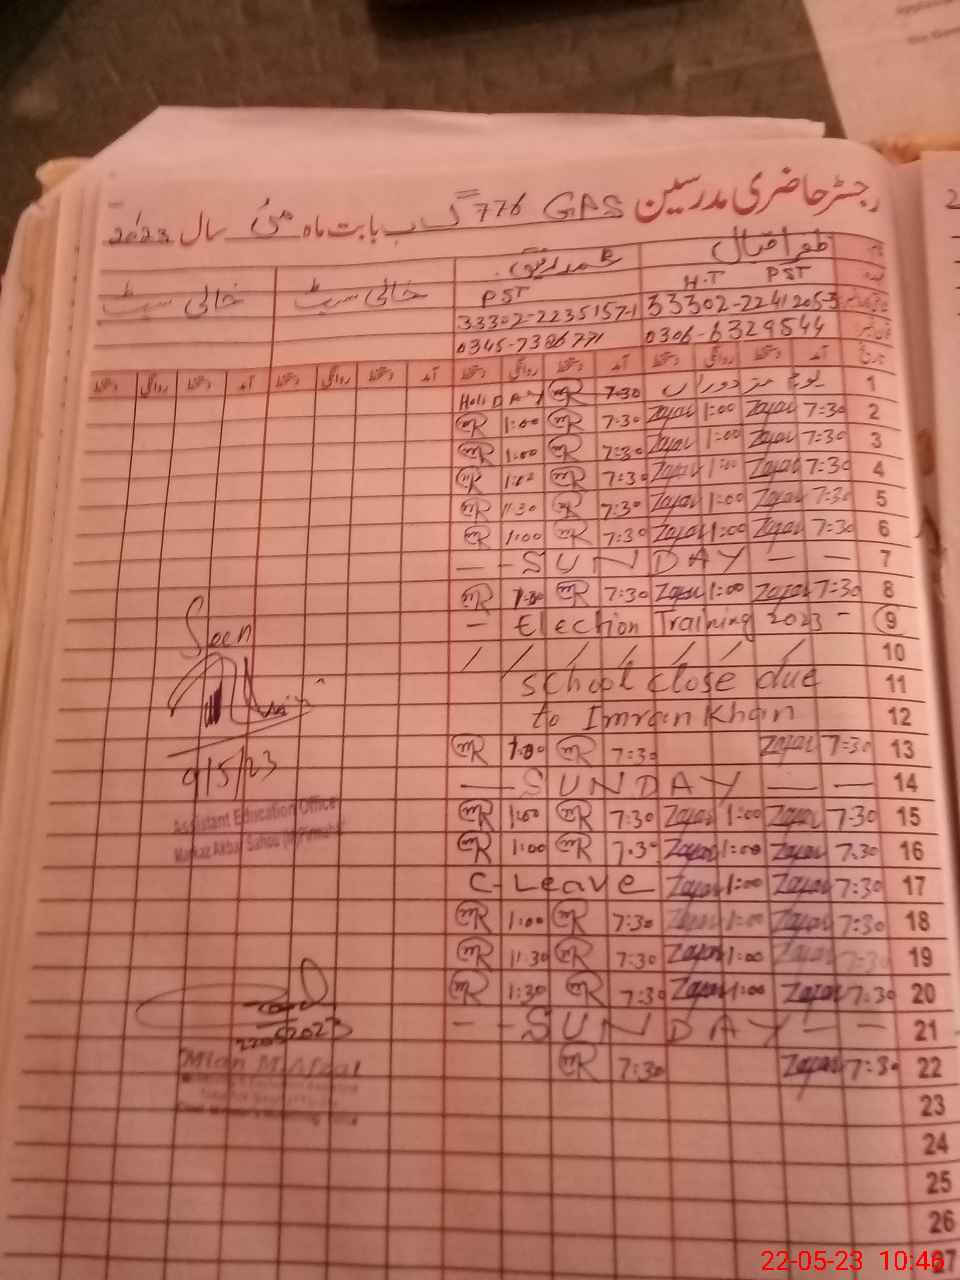 رجسٹر حاضری مدرسین GPS 776 گ ب بابت ماہ مئی سال 2023
ظفر اقبال محمد رفیق خالی سیٹ خالی سیٹ
H.T PST PST
33302-2241205-3 33302-2235157-1
0306-6329544 0345-7386771
آمد دستخط روانگی دستخط آمد دستخط روانگی دستخط آمد دستخط روانگی دستخط آمد دستخط روانگی دستخط
1 7:30 HoliDAY
2 7:30 Zafar 1:00 Zafar 7:30 1:00
3 7:30 Zafar 1:00 Zafar 7:30 1:00
4 7:30 Zafar 1:00 Zafar 7:30 1:00
5 7:30 Zafar 1:00 Zafar 7:30 11:30
6 7:30 Zafar 1:00 Zafar 7:30 1:00
7 — — SUNDAY — —
8 7:30 Zafar 1:00 Zafar 7:30
9 — Election Training 2023 -
10
11 School close due
12 to Imran Khan
13 7:30 Zafar 7:30
14 — SUNDAY — —
15 7:30 Zafar 1:00 Zafar 7:30 1:00
16 7:30 Zafar 1:00 Zafar 7:30 1:00
17 7:30 Zafar 1:00 Zafar C-Leave
18 7:30 Zafar 1:00 Zafar 7:30 1:00
19 7:30 Zafar 1:00 Zafar 7:30 11:30
20 7:30 Zafar 1:00 Zafar 7:30 1:30
21 — — SUNDAY — —
22 7:30 Zafar 7:30
23
24
25
26
27
Seen
9/5/23
Assistant Education Officer
Markaz Akbar Sahoo
22052023
Mian M. Afzal
22-05-23 10:46